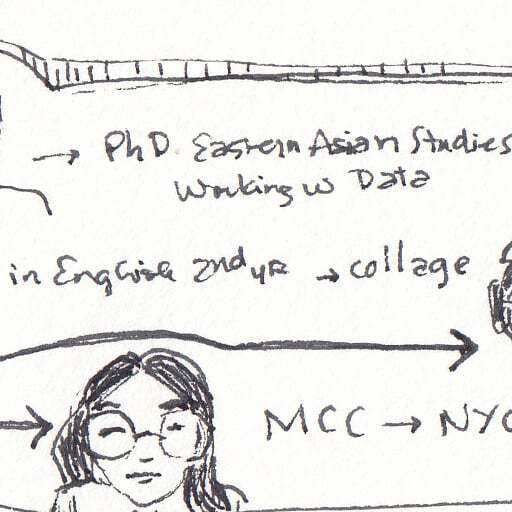 → PhD. Eastern Asian Studies
Working w Data
in English 2nd yr → collage
MCC → NYC